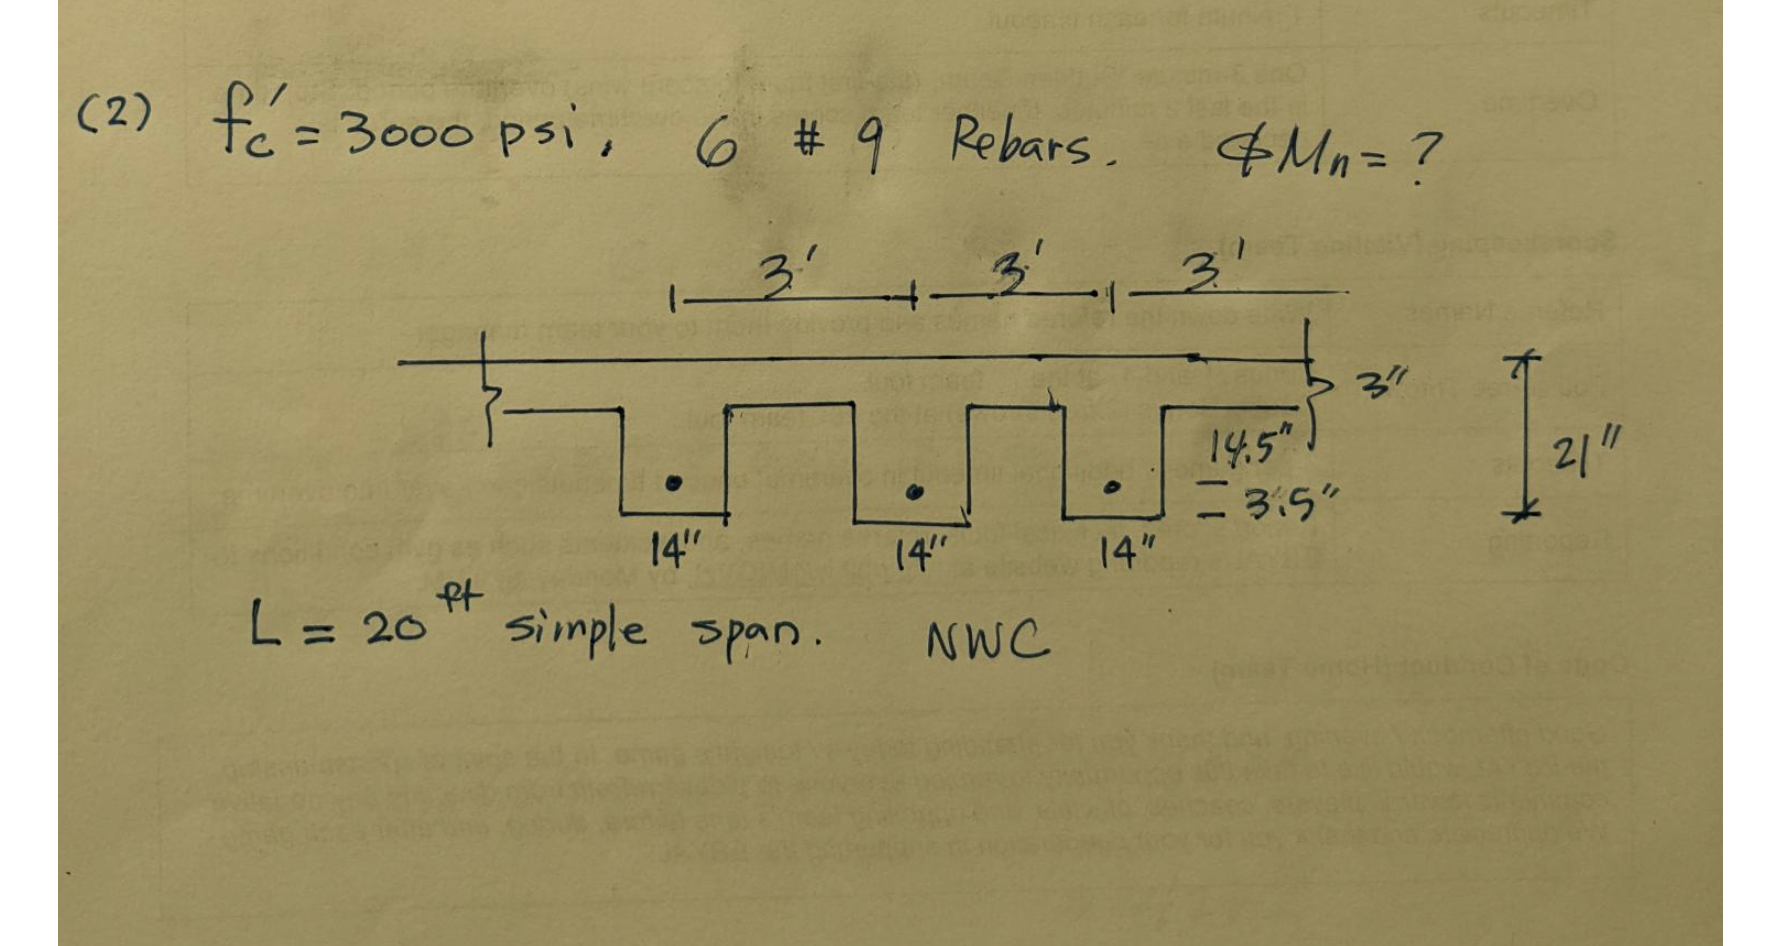 (2) f'c = 3000 psi, 6 # 9 Rebars. ϕMn = ?
3' 3' 3'
3"
14.5"
21"
3.5"
14" 14" 14"
L = 20 ft simple span. NWC